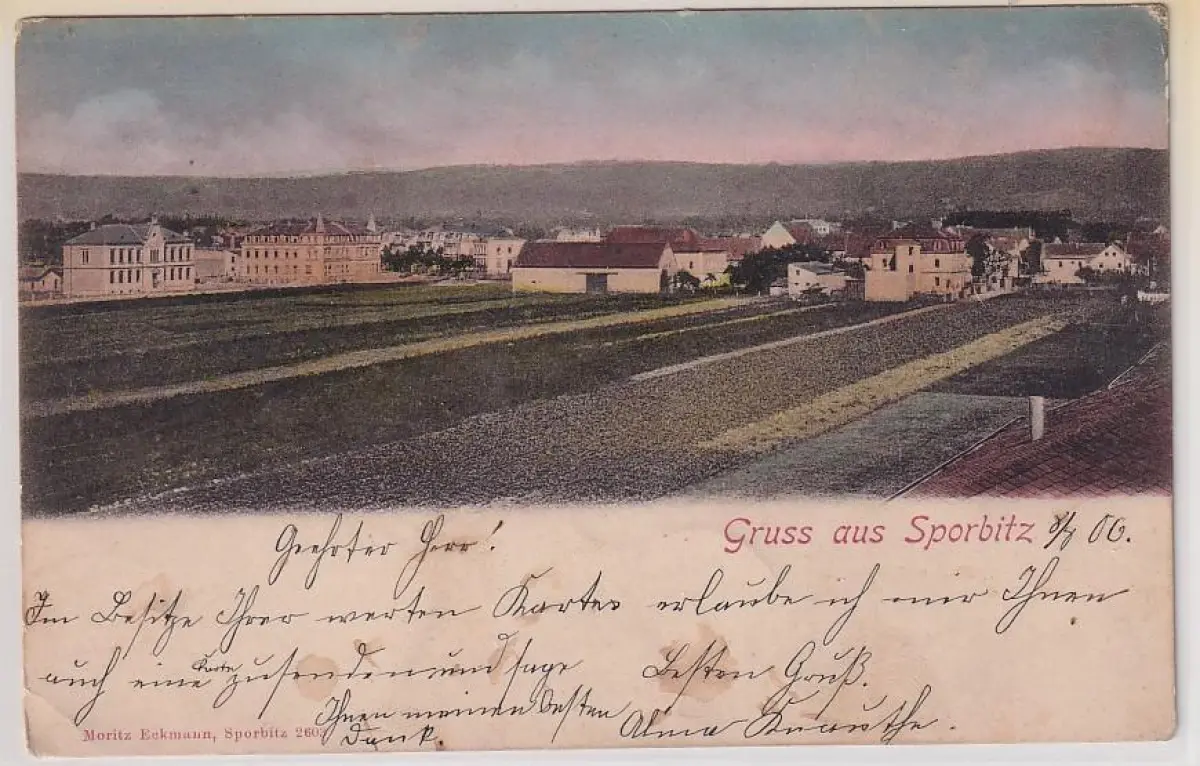 Gruss aus Sporbitz
Geehrter Herr!
Im Besitze Ihrer werten Karte erlaube ich mir Ihnen
auch eine Karte zusenden und sage Besten Gruß.
Ihnen meinen besten Alma Knauthe.
Dank.
Moritz Eckmann, Sporbitz